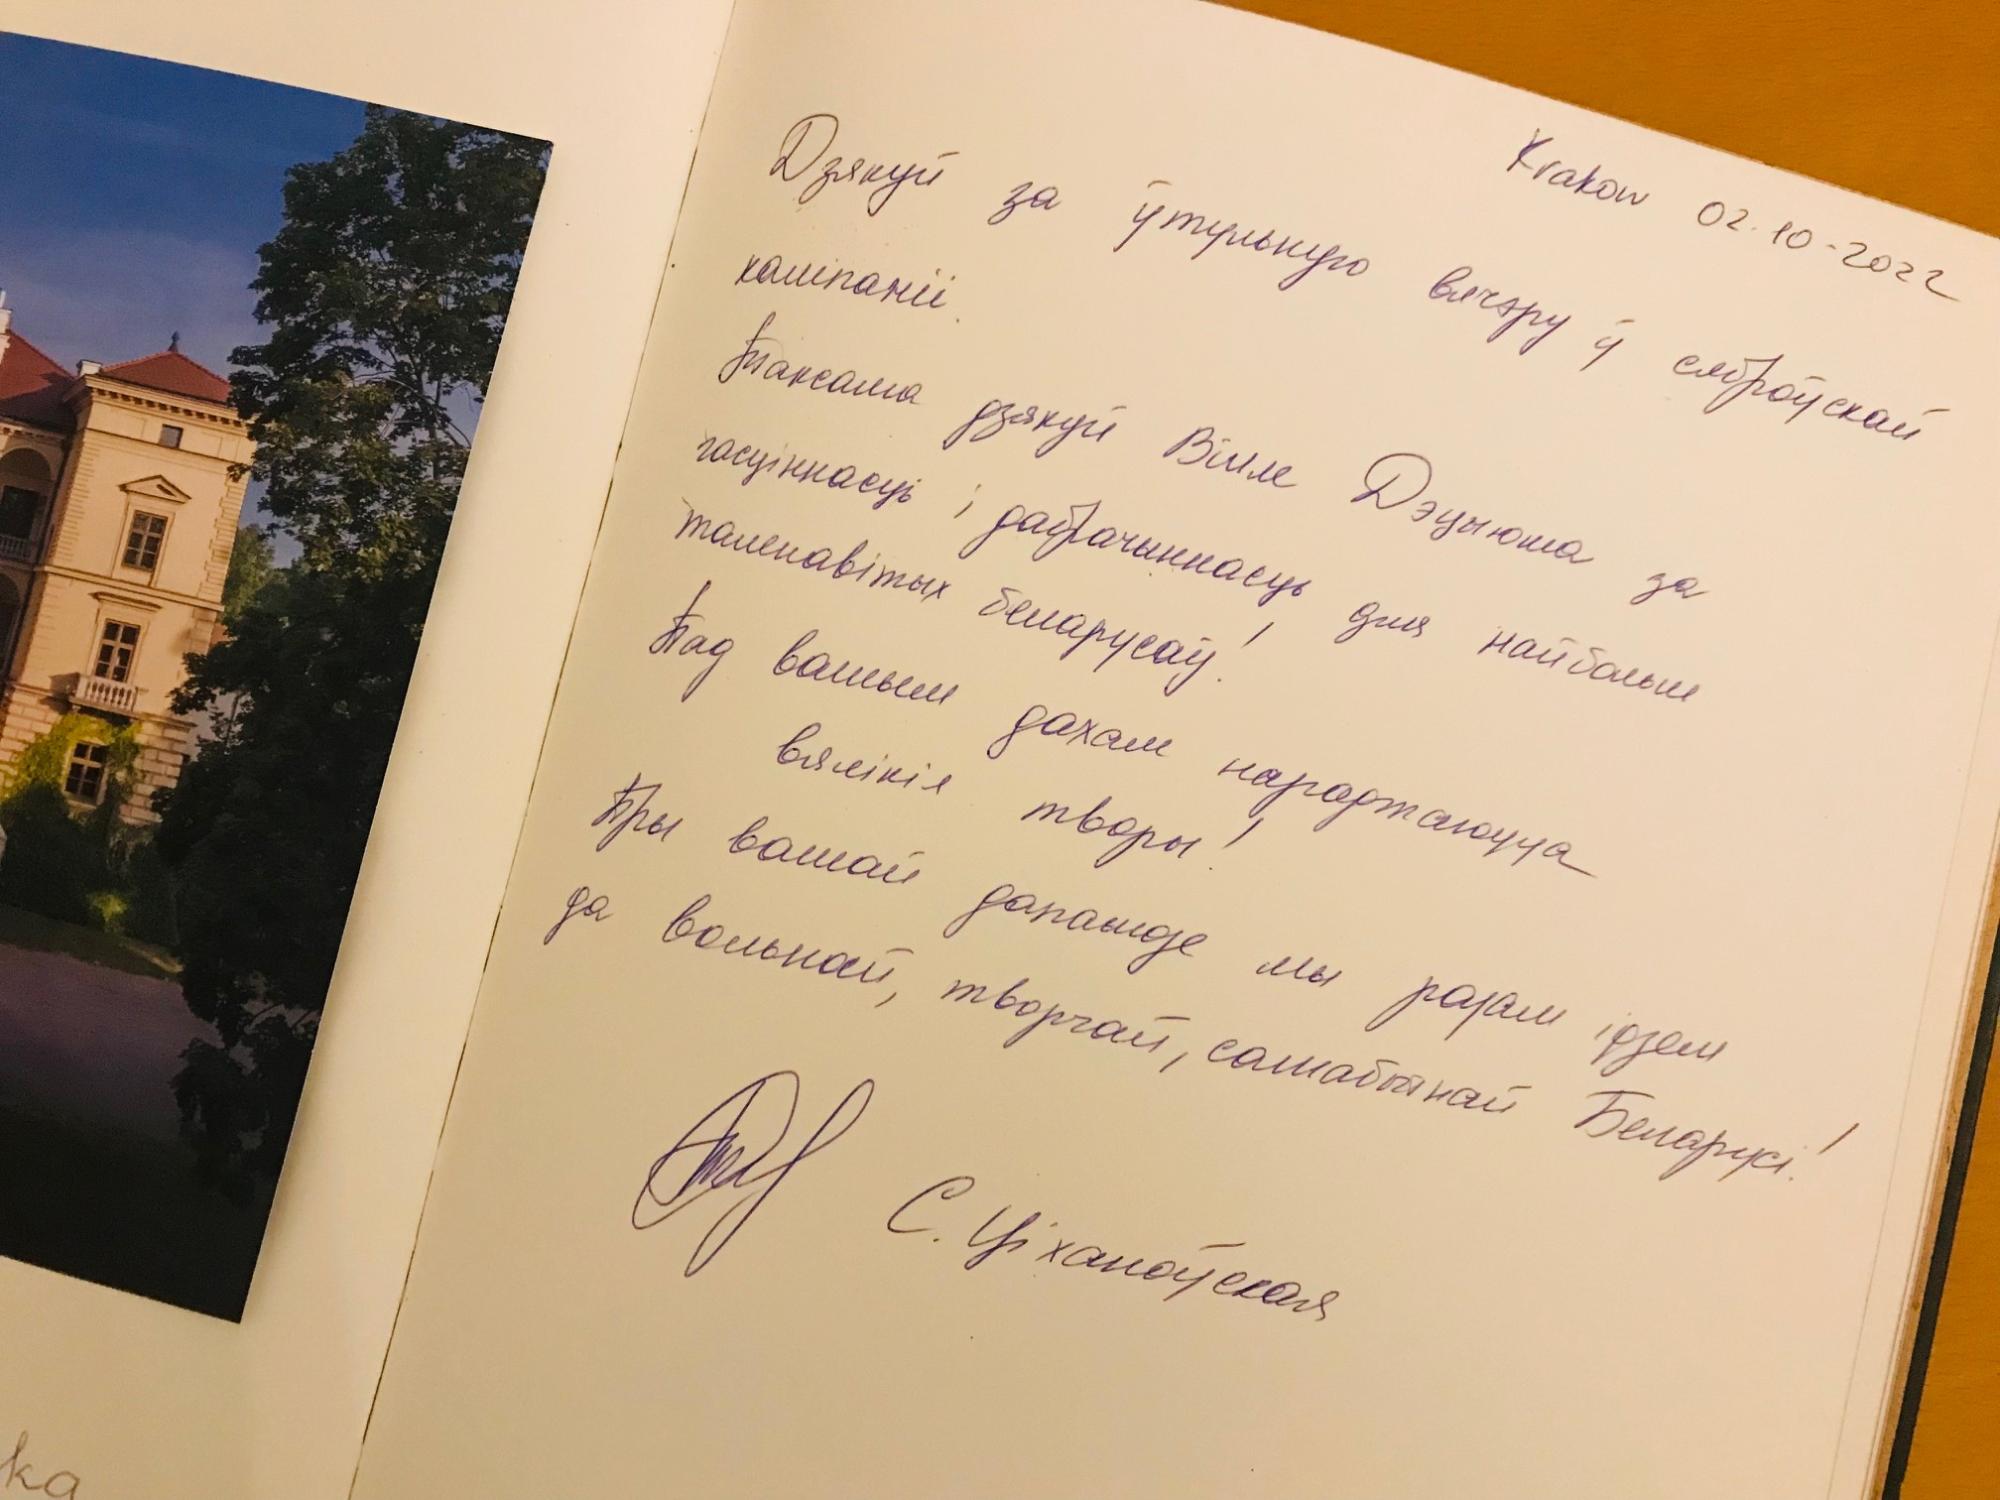 Krakow 02.10-2022
Дзякуй за ўтульную вячэру ў сяброўскай
кампаніі.
Таксама дзякуй Віле Дэцыюша за
гасціннасць і дабрачыннасць для найбольш
таленавітых беларусаў!
Пад вашым дахам нараджаюцца
вялікія творы!
Пры вашай дапамозе мы разам ідзем
да вольнай, творчай, самабытнай Беларусі!
С. Ціханоўская
ka